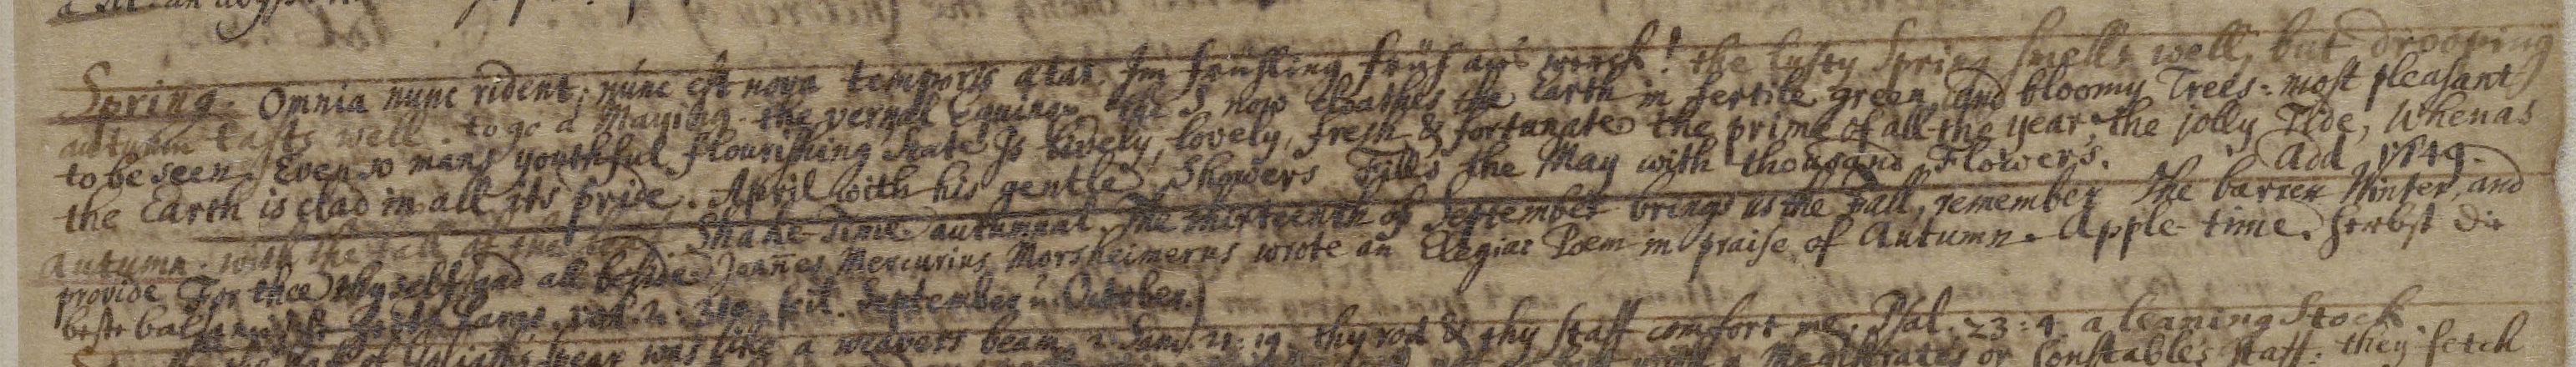 Spring. Omnia nunc rident, nunc est nova temporis ætas. Im frühling früh aus werck! the lusty Spring smells well, but drooping
autumn tasts well. to go a Maying. the vernal Equinox. the S. now cloathes the Earth in fertile green, and bloomy Trees: most pleasant
to be seen. Even so mans youthful flourishing State Is lively, lovely, fresh & fortunate. the prime of all the year, the jolly Tide, Whenas
the Earth is clad in all its pride. April with his gentle Showers Fills the May with thousand Flowers. Add
Autumn. with the fall of the Shake-time autumnal. The thirteenth of September brings us the Fall, remember The barren Winter, and
provide For thee thy self and all beside. Joannes Mercurius Morsheimerus wrote an Elegiac Poem in praise of Autumn. Apple-time. herbst die
beste September u. October.
spear was like a weavers beam. 2. Sam. 21: 19. thy rod & thy staff comfort me. Psal. 23: 4. a leaning Stock
Magistrates or Constables staff. they fetch